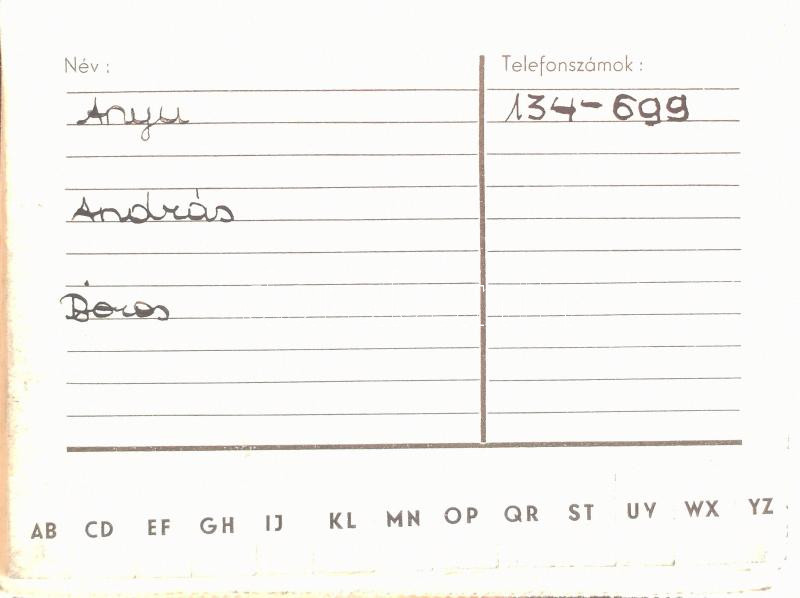 Név : Telefonszámok :
Anyu 134-699
András
Boros
AB CD EF GH IJ KL MN OP QR ST UV WX YZ